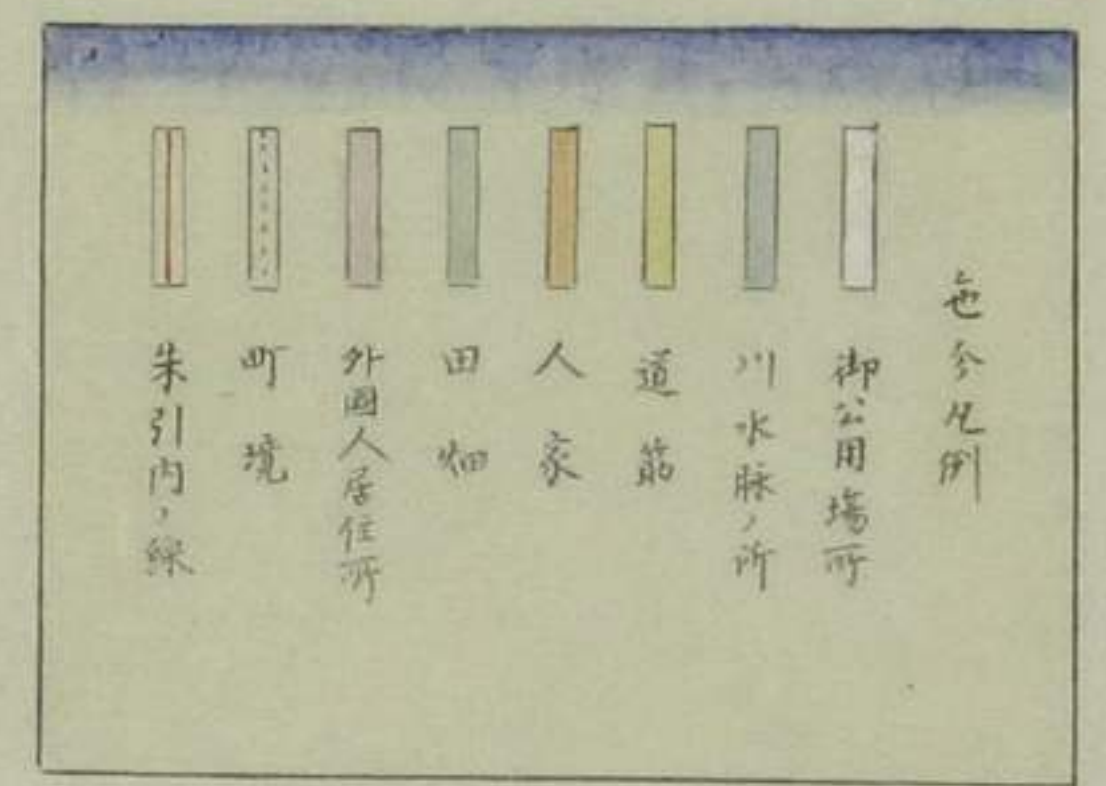 色分凡例
御公用場所
川水脉ノ所
道筋
人家
田畑
外國人居住所
町境
朱引内ノ線